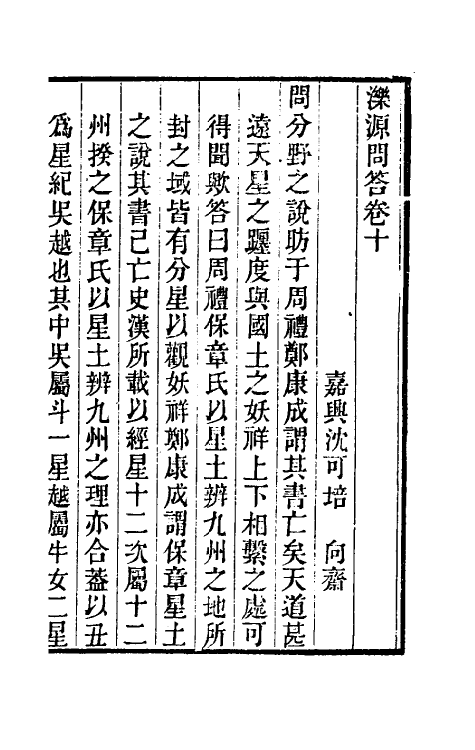 濼源問答卷十
嘉興沈可培　向齋
問分野之說昉于周禮鄭康成謂其書亡矣天道甚
遠天星之躔度與國土之妖祥上下相繫之處可
得聞歟答曰周禮保章氏以星土辨九州之地所
封之域皆有分星以觀妖祥鄭康成謂保章星土
之說其書已亡史漢所載以經星十二次屬十二
州揆之保章氏以星土辨九州之理亦合蓋以丑
為星紀吳越也其中吳屬斗一星越屬牛女二星